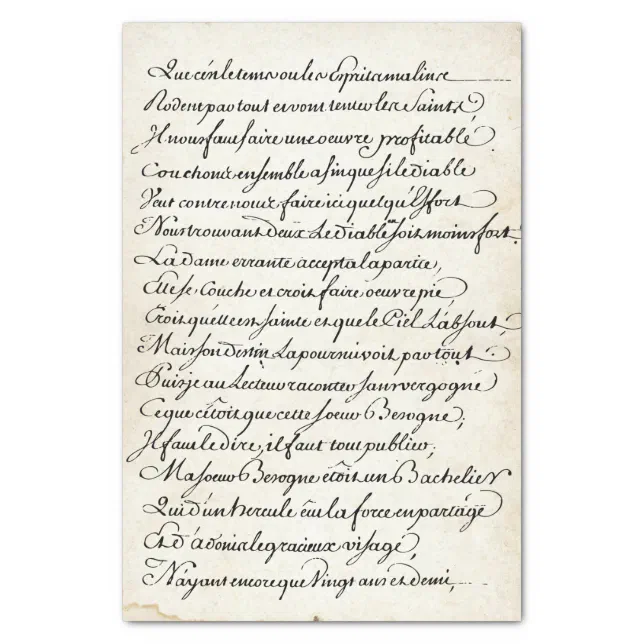 Que c'én le tems ou les Esprits malins
Rodent partout et vont tenter les Saints,
Il nous faut faire une oeuvre profitable
Couchonz ensemble afin que si le diable
Veut contre nouz faire ici quelqu'Effort
Nous trouvant deux Le diable en soit moins fort.
La dame errante accepta la partie,
Elle se Couche et croit faire oeuvre pie,
Croit qu'elle est sainte et que le Ciel L'absout,
Mais son destin La poursuivoit partout.
Puis je au Lecteur raconter sans vergogne
Ce que c'étoit que cette soeur Besogne;
Il faut le dire, il faut tout publier;
Ma soeur Besogne étoit un Bachelier
Qui d'un hercule eut la force en partage
Et d'adonis le gracieux visage,
N'ayant encore que Vingt ans et demi,